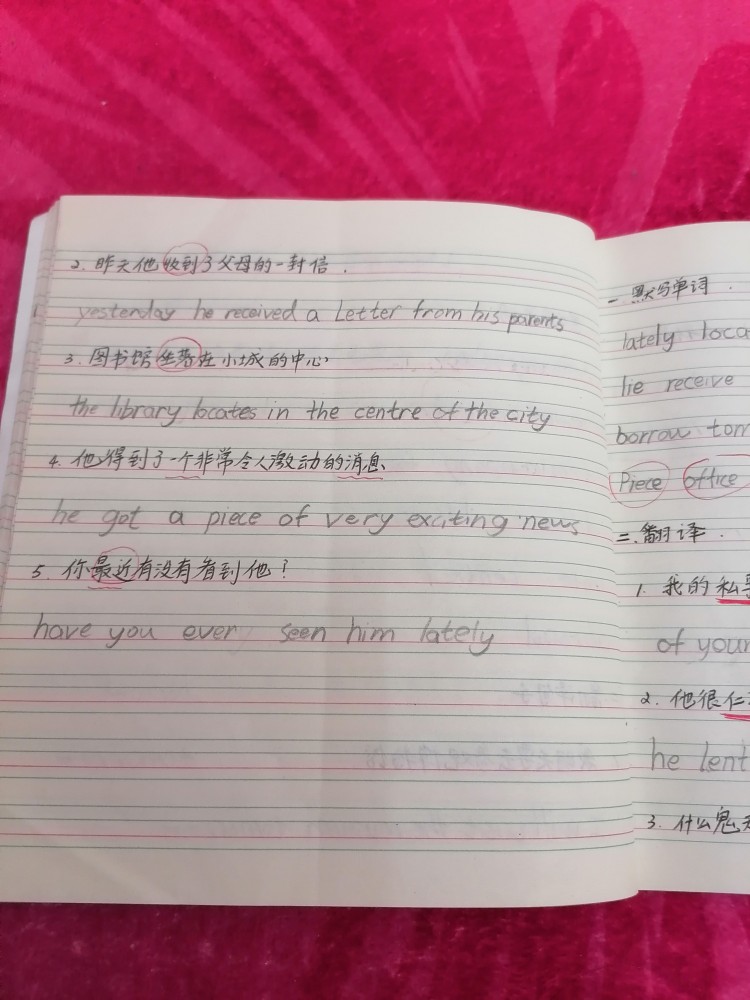 2. 昨天他收到了父母的一封信.
yesterday he received a Letter from his parents
3. 图书馆坐落在小城的中心
the library locates in the centre of the city
4. 他得到了一个非常令人激动的消息.
he got a piece of very exciting news
5. 你最近有没有看到他?
have you ever seen him lately
一 默写单词.
lately loca
lie receive
borrow tom
Piece office
二. 翻译.
1. 我的私
of your
2. 他很仁
he lent
3. 什么鬼